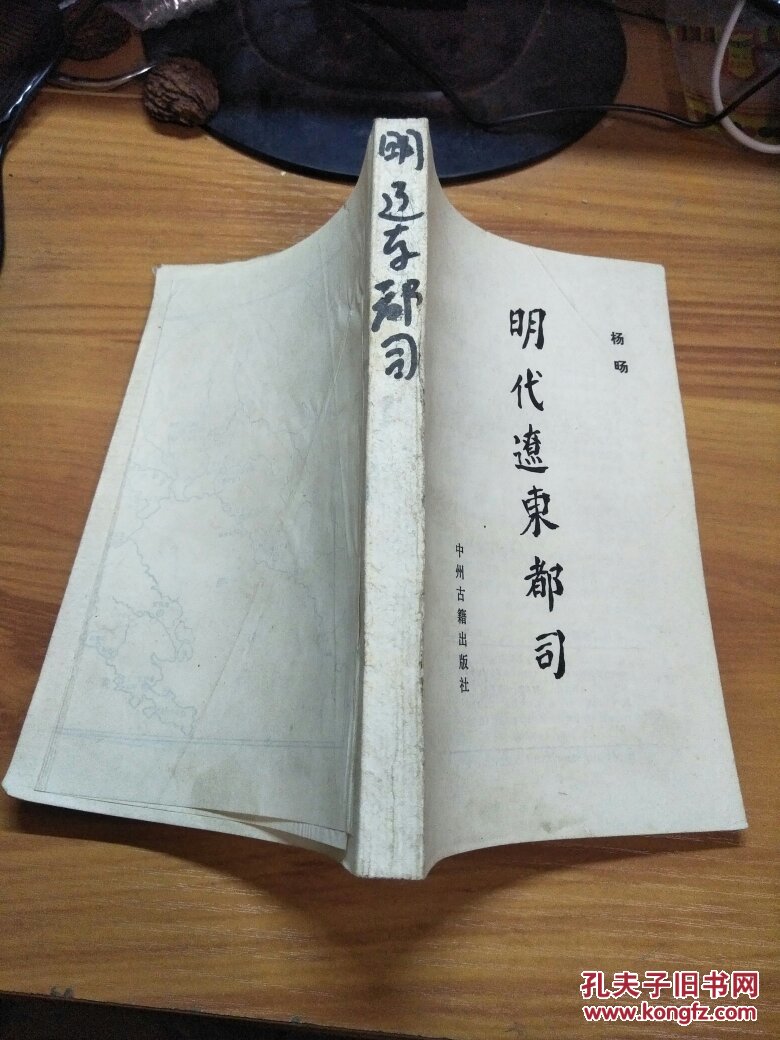 明辽东都司
杨旸
明代遼東都司
中州古籍出版社
孔夫子旧书网
www.kongfz.com